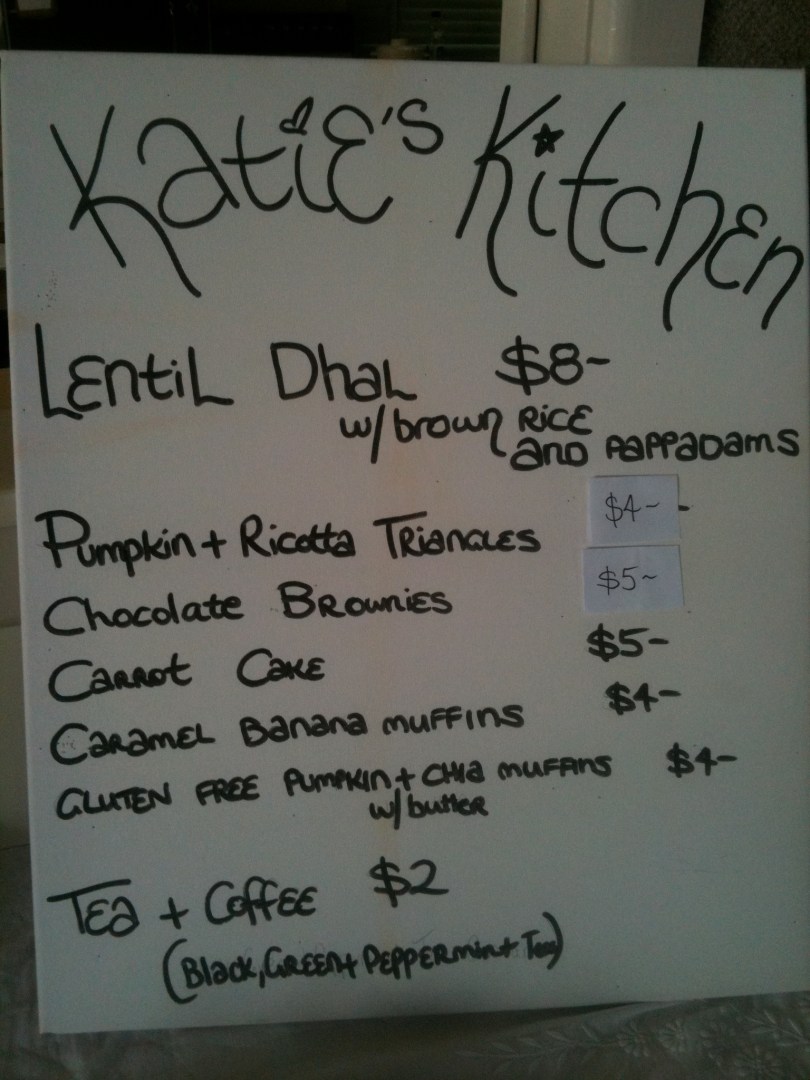 Katie's Kitchen
Lentil Dhal $8-
w/brown Rice
and pappadams
Pumpkin + Ricotta Triangles $4~
Chocolate Brownies $5~
Carrot Cake $5-
Caramel Banana muffins $4-
Gluten Free Pumpkin + Chia muffins $4-
w/butter
Tea + Coffee $2
(Black, Green + Peppermint Tea)